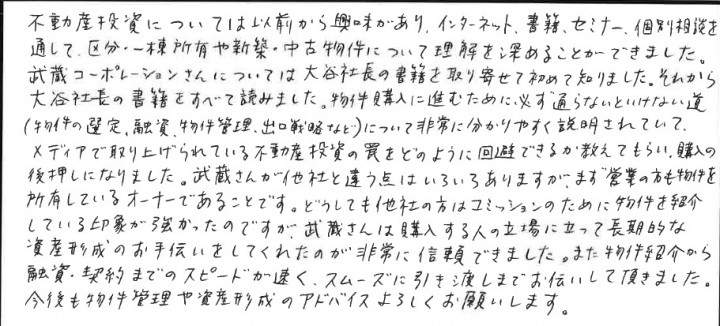 不動産投資については以前から興味があり、インターネット、書籍、セミナー、個別相談を
通して、区分・一棟所有や新築・中古物件について理解を深めることができました。
武蔵コーポレーションさんについては大谷社長の書籍を取り寄せて初めて知りました。それから
大谷社長の書籍をすべて読みました。物件購入に進むために必ず通らないといけない道
(物件の選定、融資、物件管理、出口戦略など)について非常に分かりやすく説明されていて、
メディアで取り上げられている不動産投資の罠をどのように回避できるか教えてもらい、購入の
後押しになりました。武蔵さんが他社と違う点はいろいろありますが、まず営業の方も物件を
所有しているオーナーであることです。どうしても他社の方はコミッションのために物件を紹介
している印象が強かったのですが、武蔵さんは購入する人の立場に立って長期的な
資産形成のお手伝いをしてくれたのが非常に信頼できました。また物件紹介から
融資・契約までのスピードが速く、スムーズに引き渡しまでお伝いして頂きました。
今後も物件管理や資産形成のアドバイスよろしくお願いします。